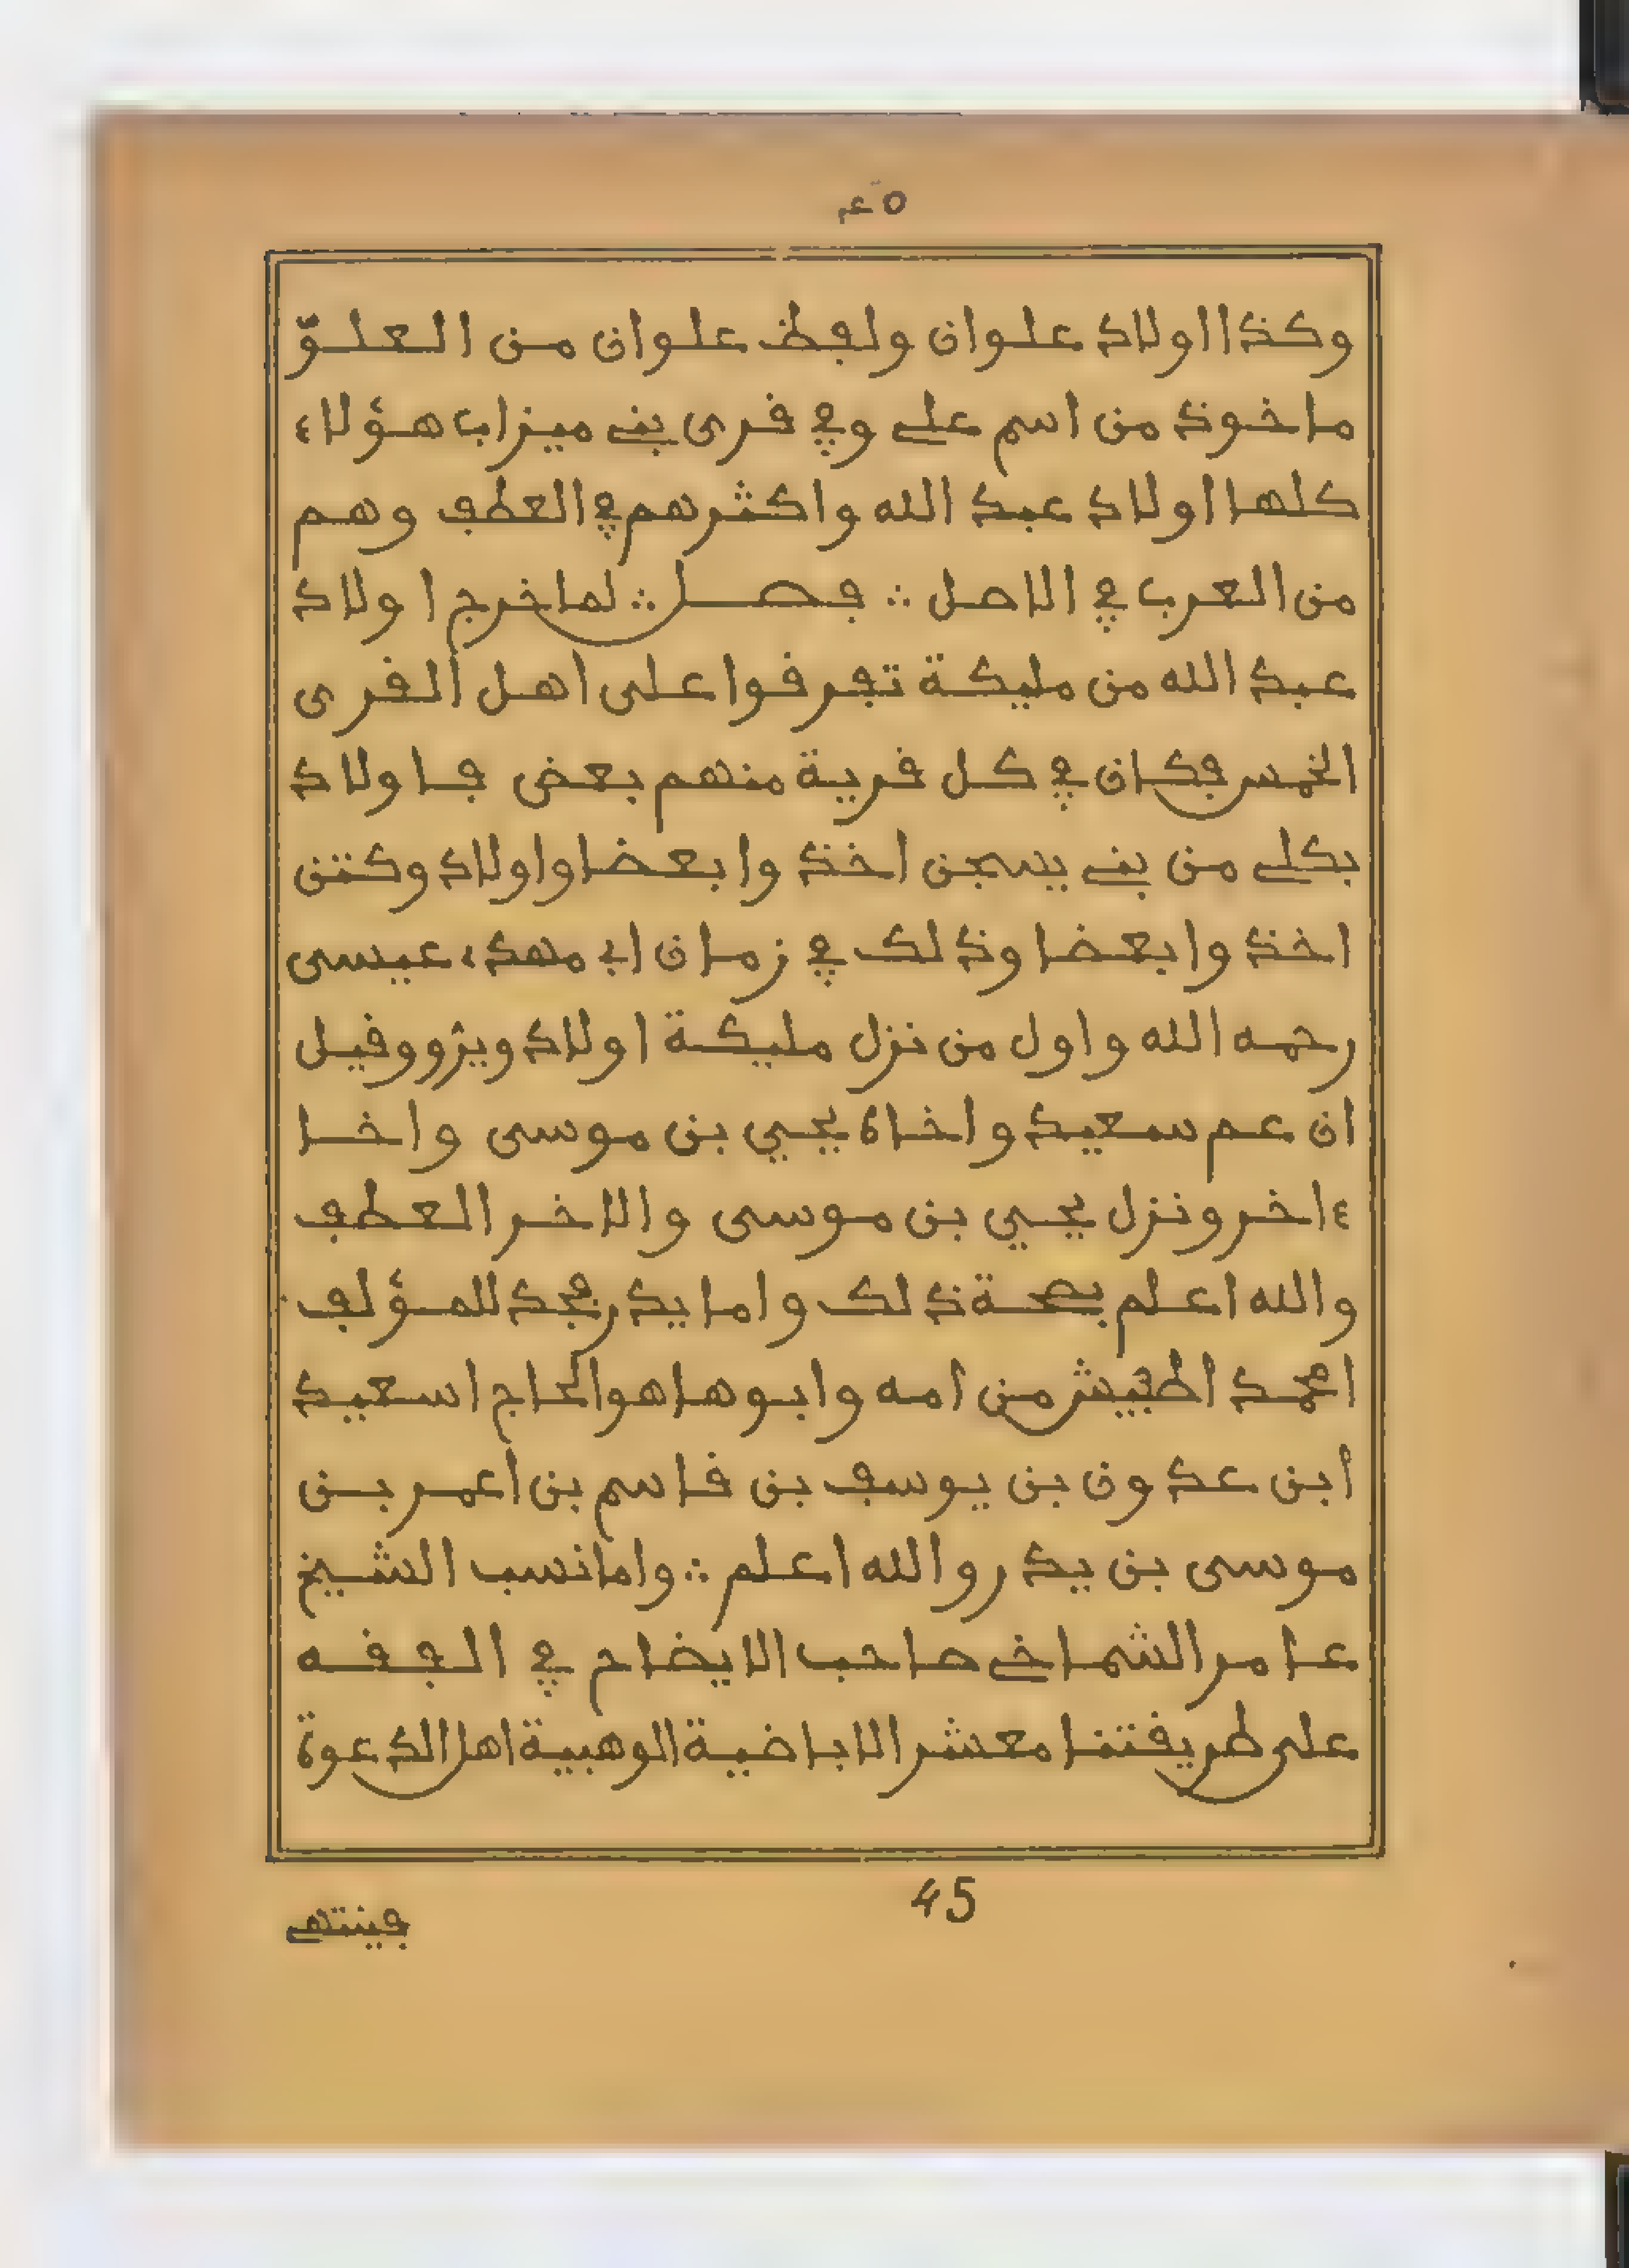 ٤٥
وكذا اولاد علوان ولفظ علوان من العلوّ
ماخوذ من اسم علي وفي قرى بني ميزاب هؤلاء
كلها اولاد عبد الله واكثرهم في العطف وهم
من العرب في الاصل ∴ فصل ∴ لما خرج اولاد
عبد الله من مليكة تفرقوا على اهل القرى
الخمس فكان في كل قرية منهم بعض فاولاد
بكلي من بني يسجن اخذوا بعضا واولاد وكتن
اخذوا بعضا وذلك في زمان ابي مهدي عيسى
رحمه الله واول من نزل مليكة اولاد ويرو وقيل
ان عم سعيد واخاه يحيي بن موسى واخا
ءاخر ونزل يحيي بن موسى والاخر العطف
والله اعلم بصحة ذلك واما يدر فجد للمؤلف
امحمد اطفيش من أمه وابوها هو الحاج اسعيد
أبن عدون بن يوسف بن قاسم بن اعمر بن
موسى بن يدر والله اعلم ∴ واما نسب الشيخ
عامر الشماخي صاحب الايضاح في الفقه
على طريقتنا معشر الاباضية الوهبية اهل الدعوة
45
فينتهي